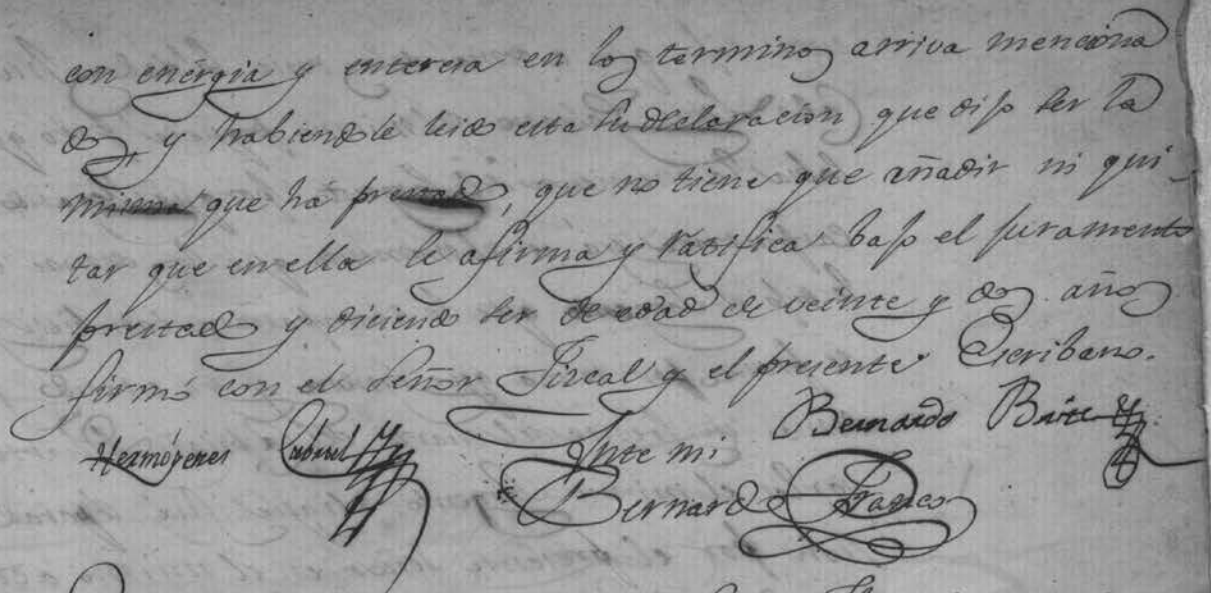 con energia y entereza en los terminos arriva menciona
dos, y habiendole leido esta su declaracion que dijo ser la
misma que há prestado, que no tiene que añadir ni qui-
tar que en ella se afirma y ratifica bajo el juramento
prestado y diciendo ser de edad de veinte y dos años
firmó con el Señor Fiscal y el presente Escribano.
Hermógenes Cubriel
Bernardo
Ante mi
Bernardo Franco